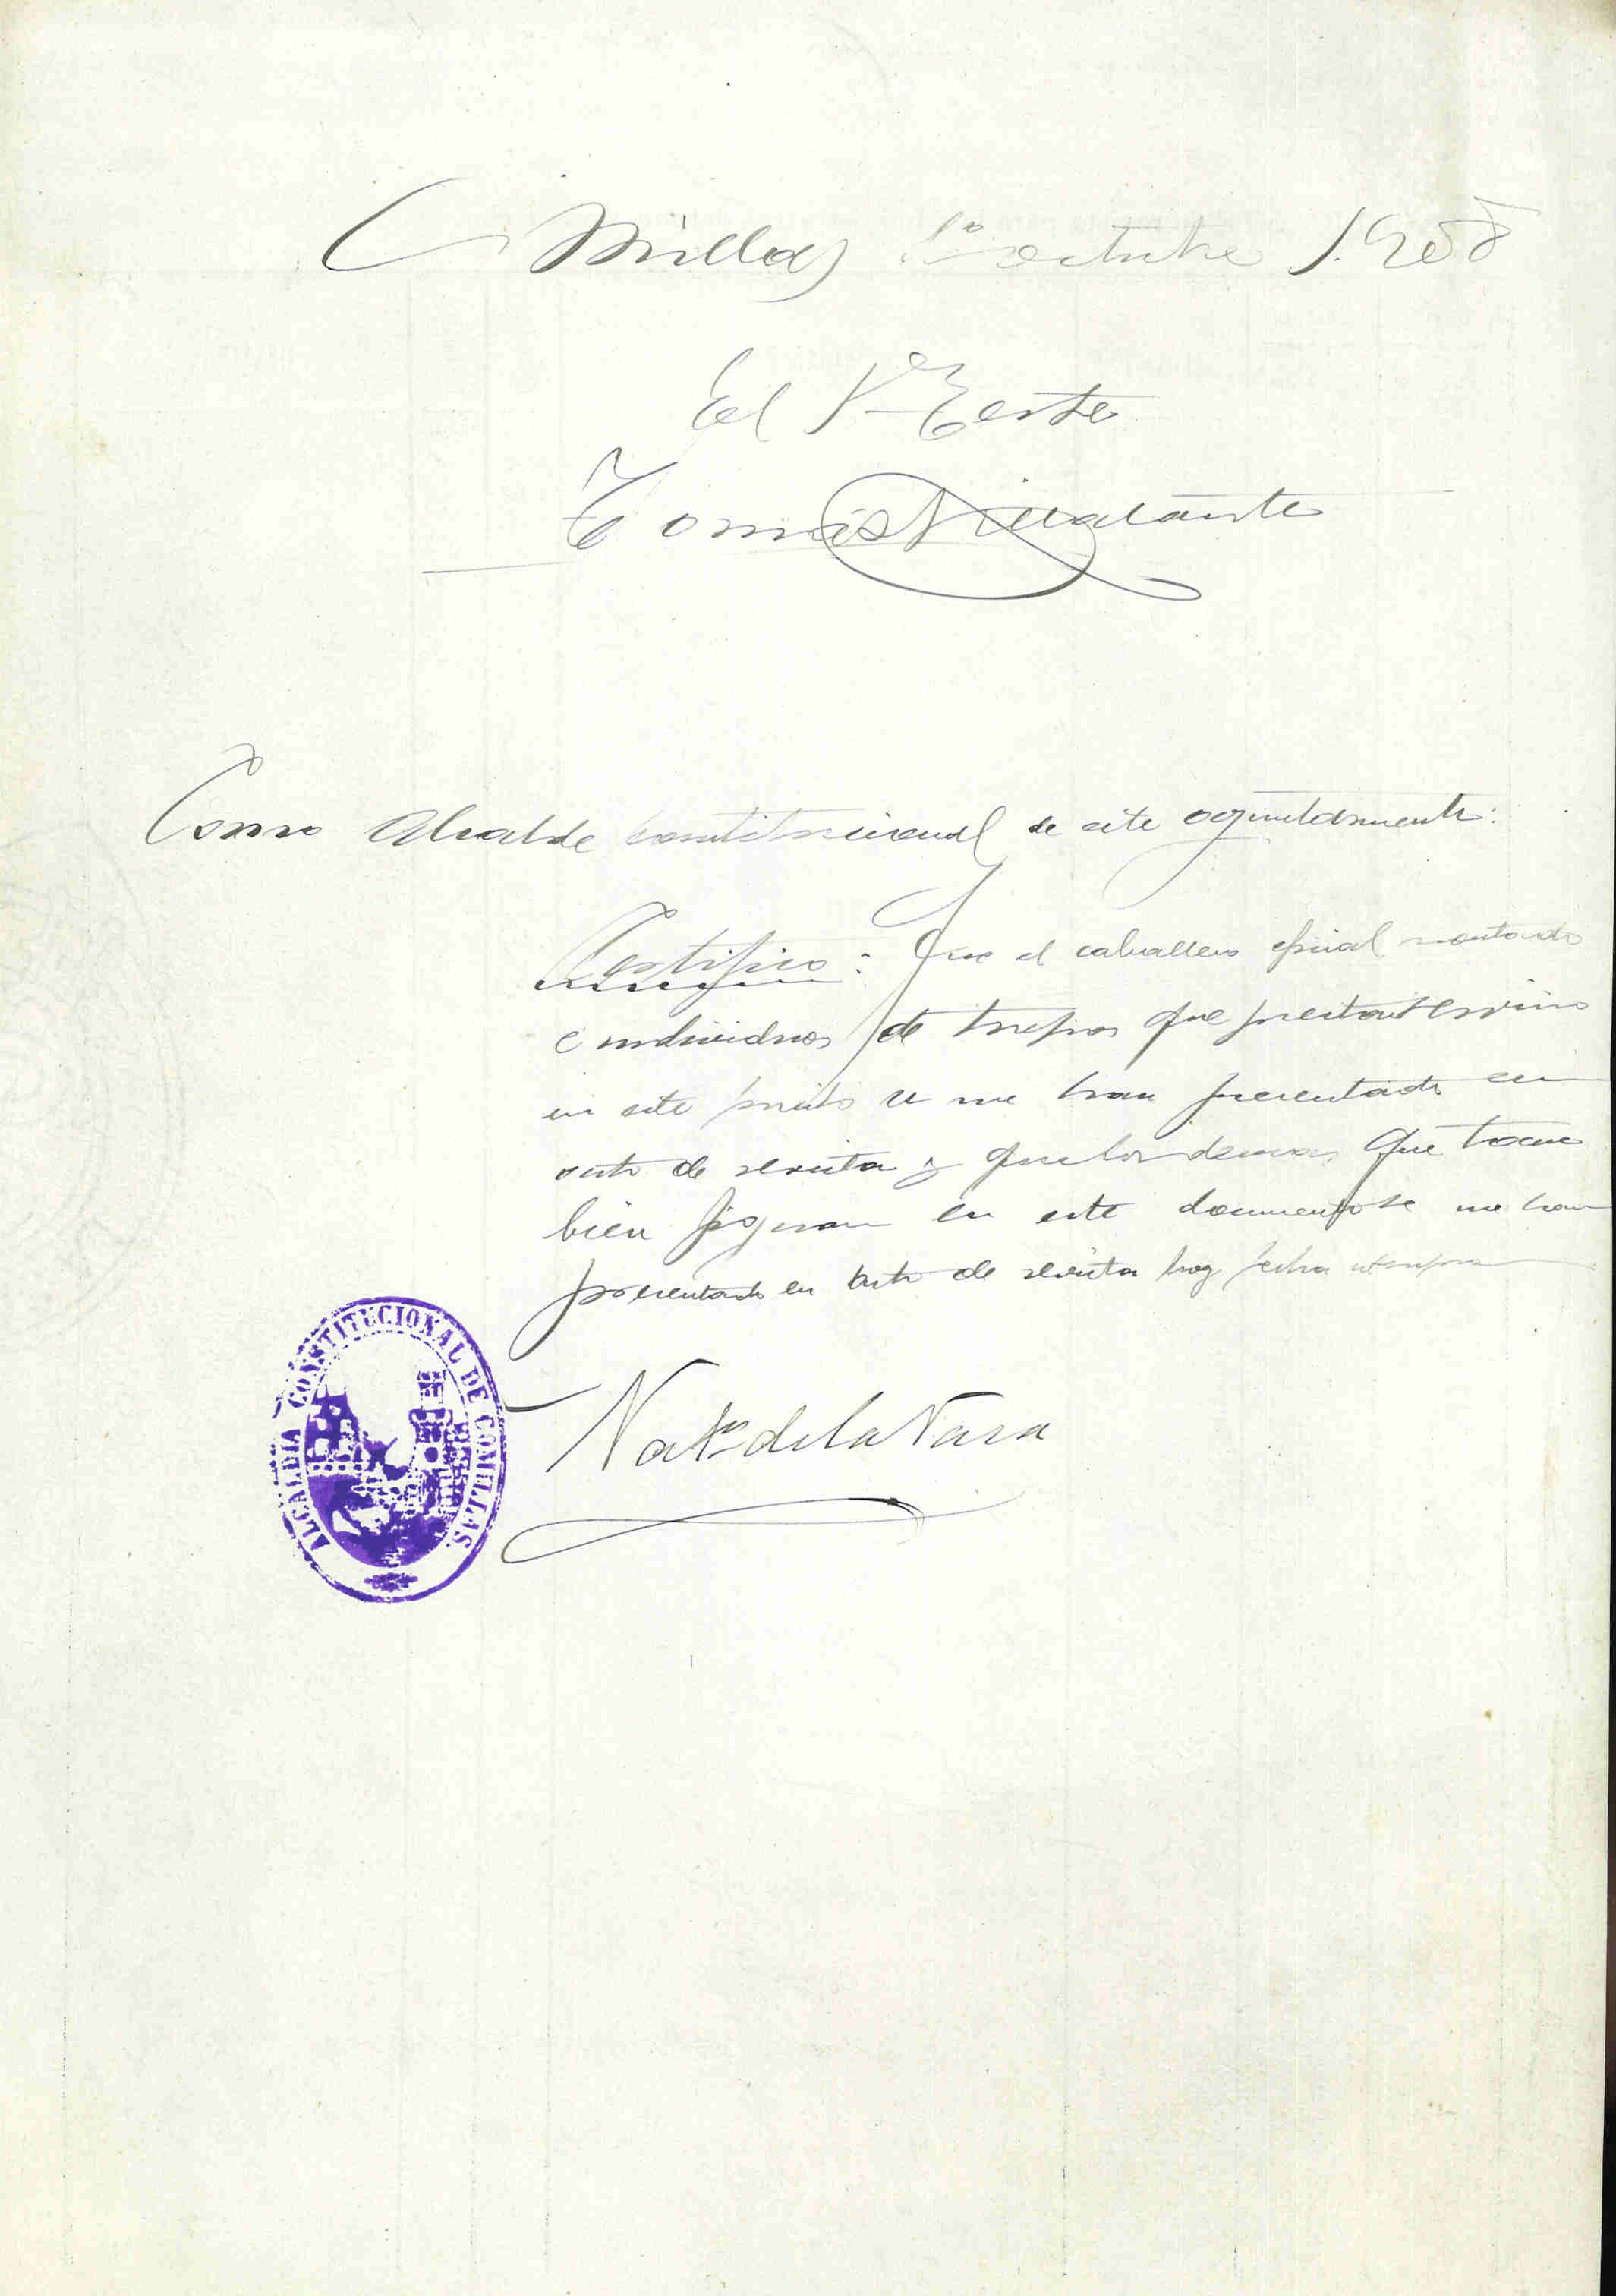 Comillas 1º octubre 1908
El 1er Tente
Tomás Villatante
Como Alcalde constitucional de este ayuntamiento:
Certifico: Que el caballero oficial montado
e individuos de tropa que prestan servicio
en este punto se me han presentado en
acto de revista y que los demas que tam
bien figuran en este documento se me han
presentado en acto de revista hoy fecha utsupra
ALCALDIA CONSTITUCIONAL DE COMILLAS.
de la Vara